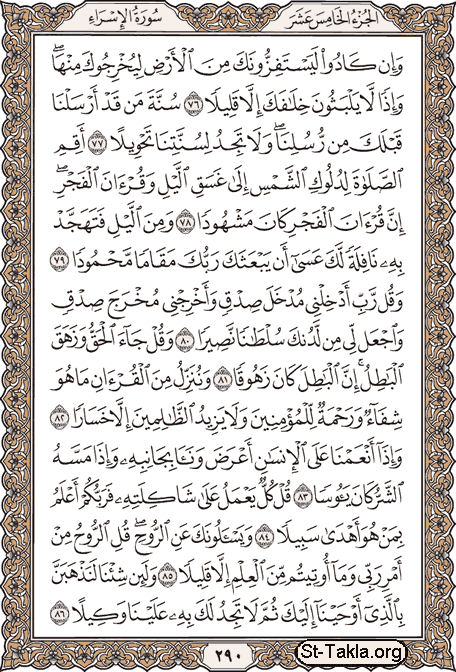 الجزء الخامس عشر
سورة الإسراء
وَإِن كَادُوا۟ لَيَسْتَفِزُّونَكَ مِنَ ٱلْأَرْضِ لِيُخْرِجُوكَ مِنْهَا ۖ
وَإِذًا لَّا يَلْبَثُونَ خِلَـٰفَكَ إِلَّا قَلِيلًا ٧٦ سُنَّةَ مَن قَدْ أَرْسَلْنَا
قَبْلَكَ مِن رُّسُلِنَا ۖ وَلَا تَجِدُ لِسُنَّتِنَا تَحْوِيلًا ٧٧ أَقِمِ
ٱلصَّلَوٰةَ لِدُلُوكِ ٱلشَّمْسِ إِلَىٰ غَسَقِ ٱلَّيْلِ وَقُرْءَانَ ٱلْفَجْرِ ۖ
إِنَّ قُرْءَانَ ٱلْفَجْرِ كَانَ مَشْهُودًا ٧٨ وَمِنَ ٱلَّيْلِ فَتَهَجَّدْ
بِهِۦ نَافِلَةً لَّكَ عَسَىٰٓ أَن يَبْعَثَكَ رَبُّكَ مَقَامًا مَّحْمُودًا ٧٩
وَقُل رَّبِّ أَدْخِلْنِى مُدْخَلَ صِدْقٍ وَأَخْرِجْنِى مُخْرَجَ صِدْقٍ
وَٱجْعَل لِّى مِن لَّدُنكَ سُلْطَـٰنًا نَّصِيرًا ٨٠ وَقُلْ جَآءَ ٱلْحَقُّ وَزَهَقَ
ٱلْبَـٰطِلُ ۚ إِنَّ ٱلْبَـٰطِلَ كَانَ زَهُوقًا ٨١ وَنُنَزِّلُ مِنَ ٱلْقُرْءَانِ مَا هُوَ
شِفَآءٌ وَرَحْمَةٌ لِّلْمُؤْمِنِينَ ۙ وَلَا يَزِيدُ ٱلظَّـٰلِمِينَ إِلَّا خَسَارًا ٨٢
وَإِذَآ أَنْعَمْنَا عَلَى ٱلْإِنسَـٰنِ أَعْرَضَ وَنَـَٔا بِجَانِبِهِۦ ۖ وَإِذَا مَسَّهُ
ٱلشَّرُّ كَانَ يَـُٔوسًا ٨٣ قُلْ كُلٌّ يَعْمَلُ عَلَىٰ شَاكِلَتِهِۦ فَرَبُّكُمْ أَعْلَمُ
بِمَنْ هُوَ أَهْدَىٰ سَبِيلًا ٨٤ وَيَسْـَٔلُونَكَ عَنِ ٱلرُّوحِ ۖ قُلِ ٱلرُّوحُ مِنْ
أَمْرِ رَبِّى وَمَآ أُوتِيتُم مِّنَ ٱلْعِلْمِ إِلَّا قَلِيلًا ٨٥ وَلَئِن شِئْنَا لَنَذْهَبَنَّ
بِٱلَّذِىٓ أَوْحَيْنَآ إِلَيْكَ ثُمَّ لَا تَجِدُ لَكَ بِهِۦ عَلَيْنَا وَكِيلًا ٨٦
٢٩٠
St-Takla.org